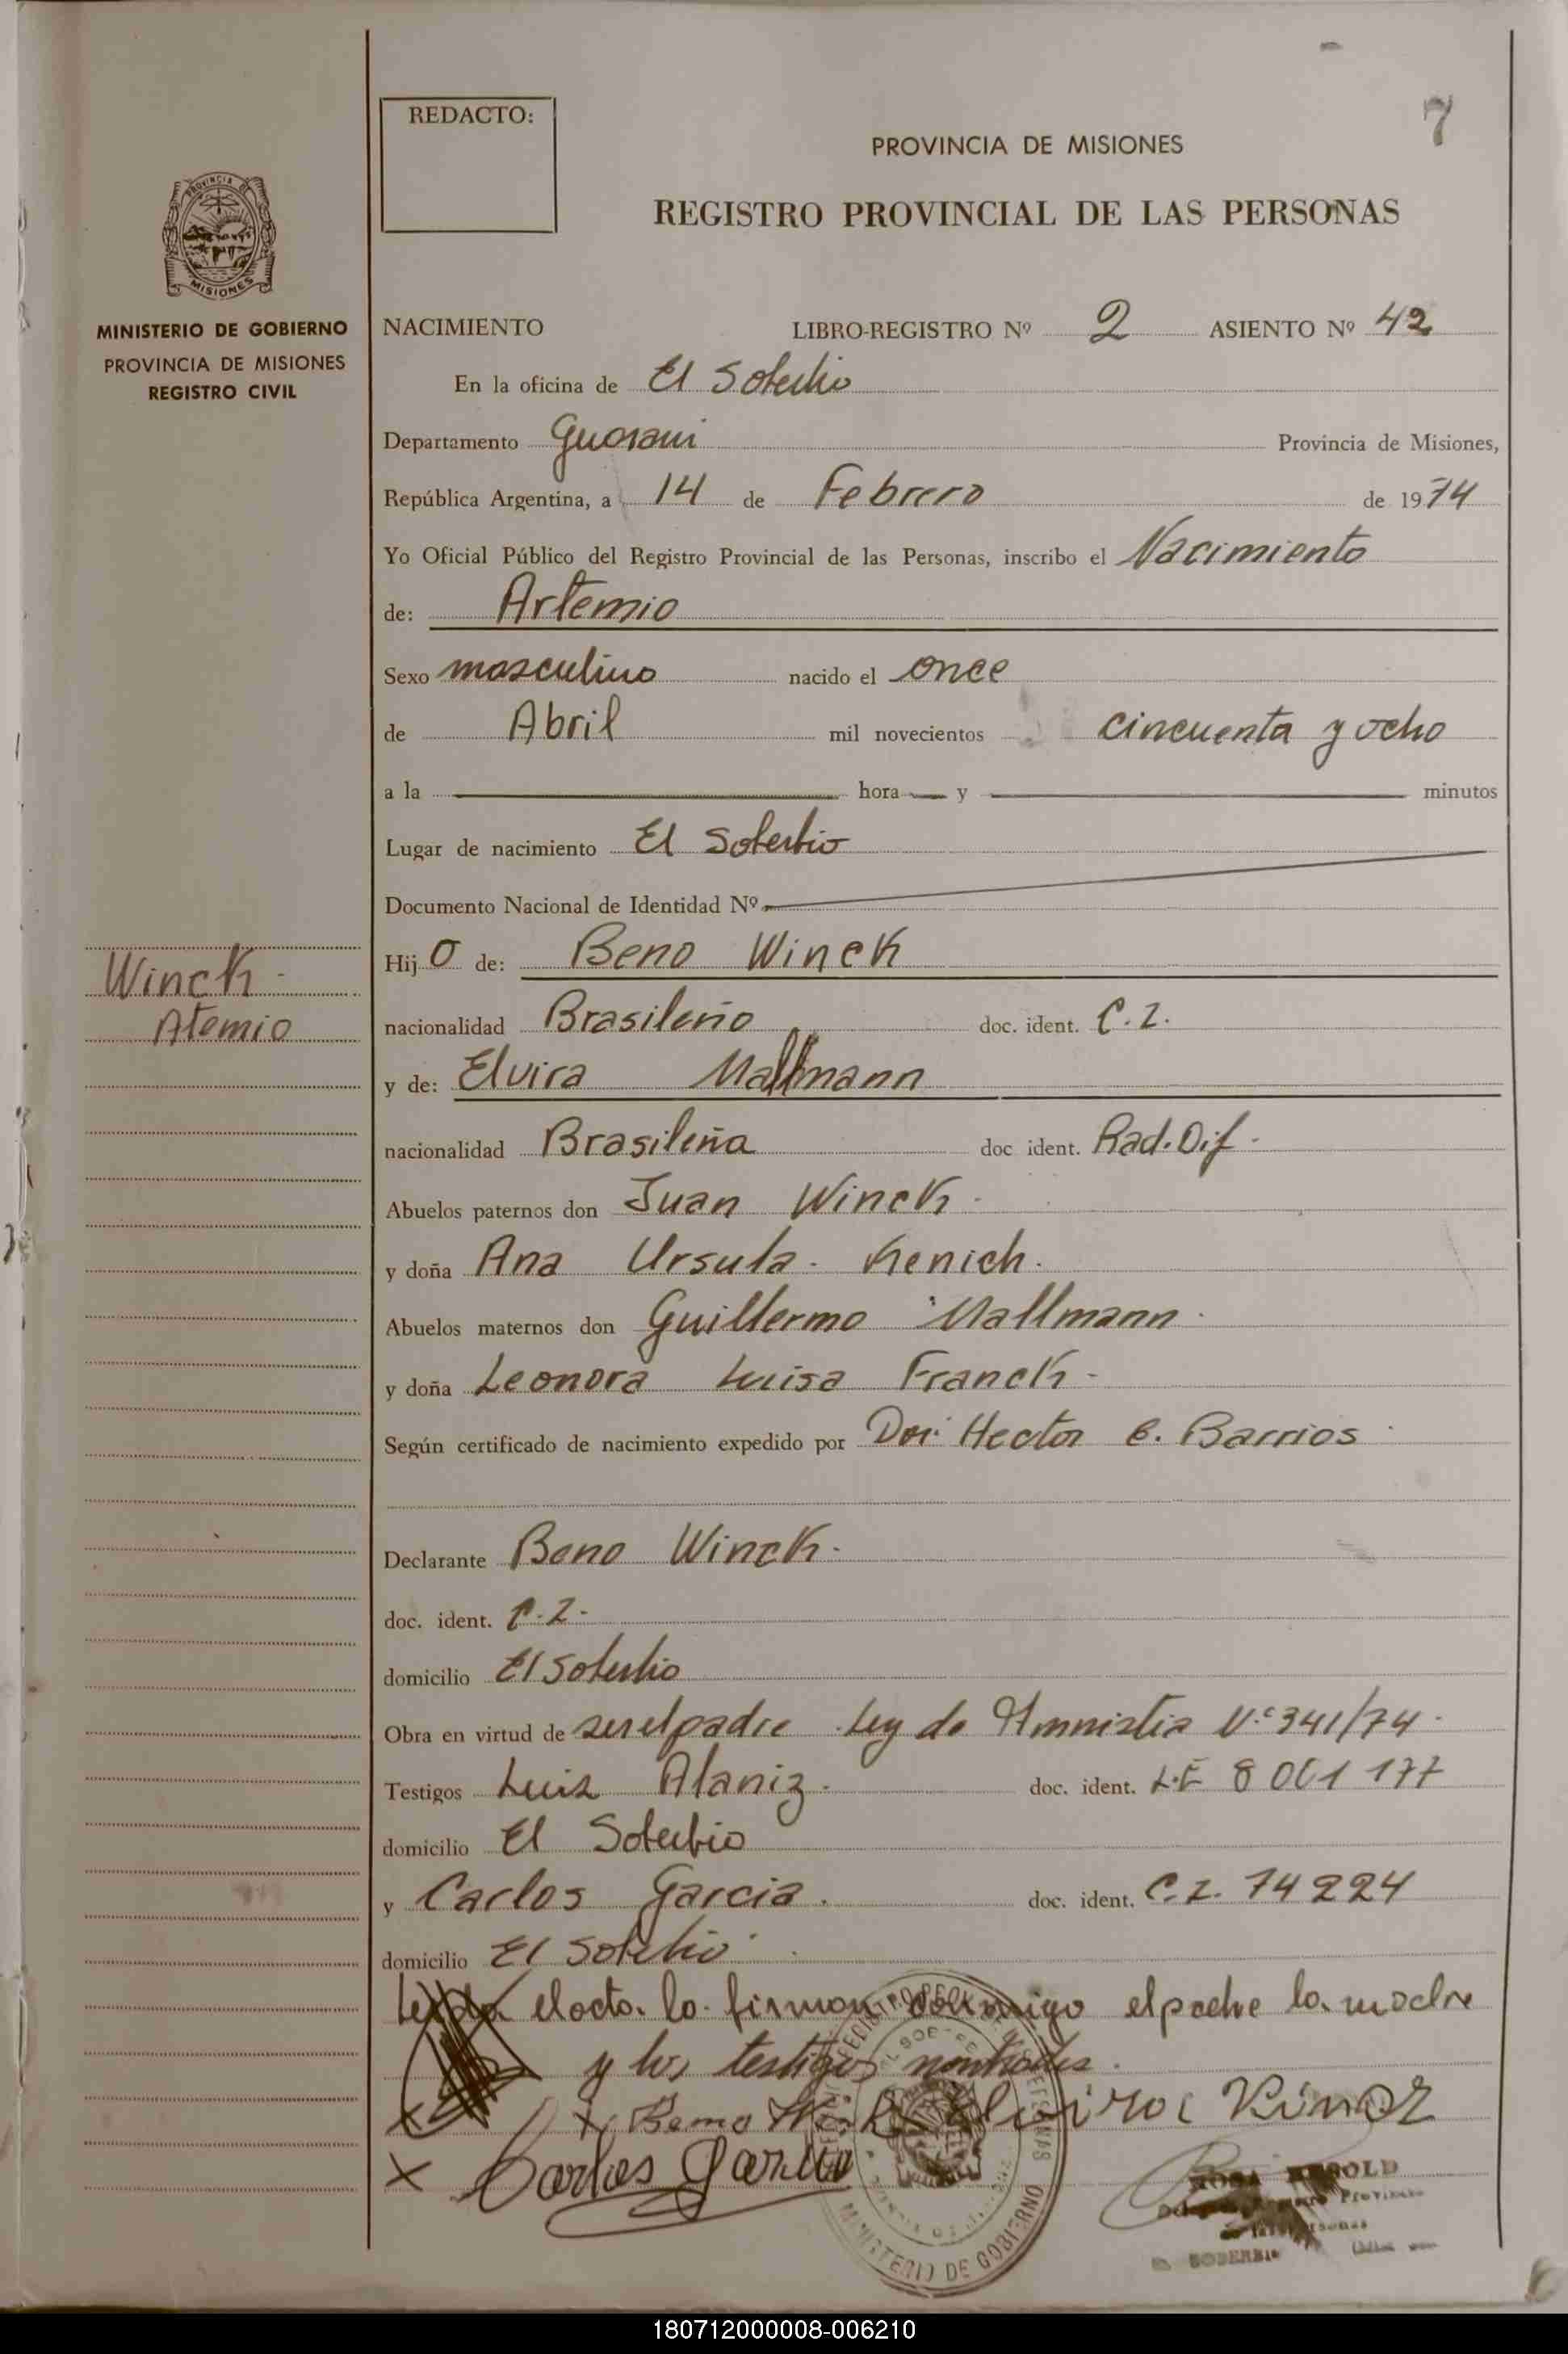 REDACTO:
7
PROVINCIA DE MISIONES
REGISTRO PROVINCIAL DE LAS PERSONAS
PROVINCIA DE
MISIONES
MINISTERIO DE GOBIERNO
PROVINCIA DE MISIONES
REGISTRO CIVIL
NACIMIENTO LIBRO-REGISTRO Nº 2 ASIENTO Nº 42
En la oficina de El Soberbio
Departamento Guarani Provincia de Misiones,
República Argentina, a 14 de Febrero de 1974
Yo Oficial Público del Registro Provincial de las Personas, inscribo el Nacimiento
de: Artemio
Sexo masculino nacido el once
de Abril mil novecientos cincuenta y ocho
a la hora y minutos
Lugar de nacimiento El Soberbio
Documento Nacional de Identidad Nº
Hij o de: Beno Winck
Winck -
Atemio
nacionalidad Brasileño doc. ident. C.I.
y de: Elvira Mallmann
nacionalidad Brasileña doc ident. Rad. Dif -
Abuelos paternos don Juan Winck -
y doña Ana Ursula - Kenich.
Abuelos maternos don Guillermo Mallmann -
y doña Leonora Luisa Franck -
Según certificado de nacimiento expedido por Hector C. Barrios
Declarante Beno Winck -
doc. ident. C.I. -
domicilio El Soberbio
Obra en virtud de ser el padre Ley de Amnistia Nº 341/74 -
Testigos Luis Alaniz - doc. ident. L.E 8 061 177
domicilio El Soberbio
y Carlos Garcia. doc. ident. C.I. 74224
domicilio El Soberbio
el acta lo firman conmigo el padre la madre
y los testigos nombrados.
x x Beno
x Carlos Garcia
MINISTERIO DE GOBIERNO
ROSA
SOBERBIO
180712000008-006210